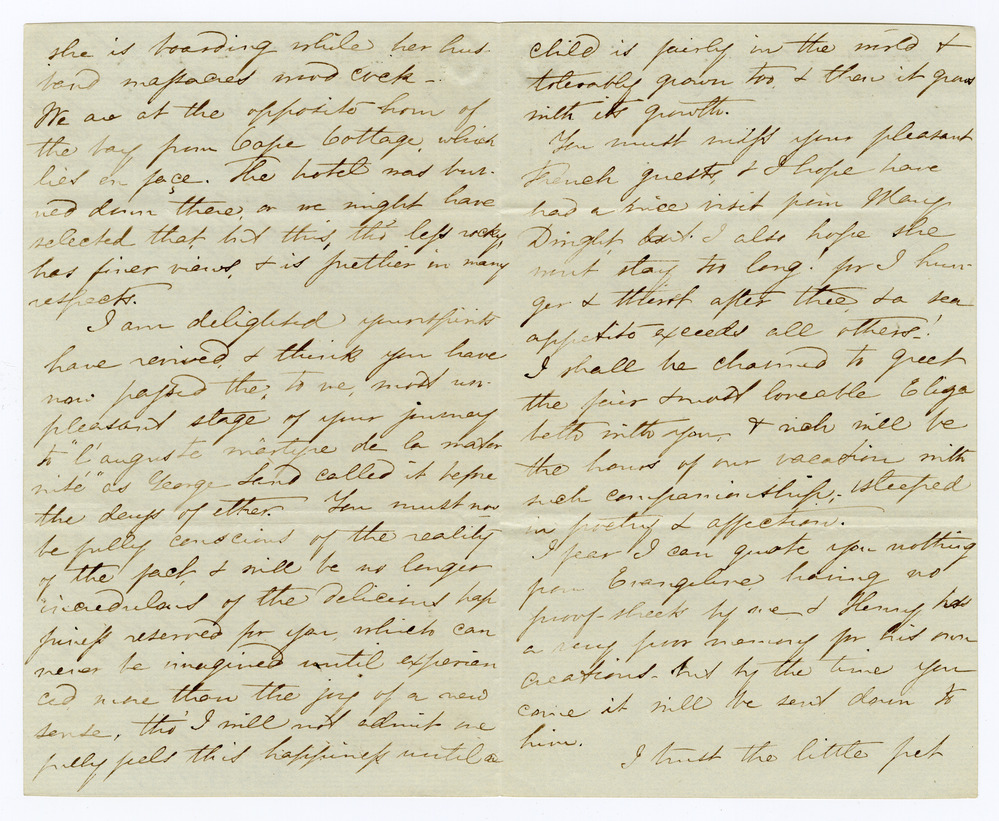 she is boarding while her hus-
band massacres wood cock -
We are at the opposite horn of
the bay from Cape Cottage, which
lies in face. The hotel was bur-
ned down there, or we might have
selected that but this, tho' less rocky,
has finer views, & is prettier in many
respects.
I am delighted your spirits
have revived, & think you have
now passed the, to me, most un-
pleasant stage of your journey
to "l'auguste martyre de la mater
nité" as George Sand called it before
the days of ether. You must now
be fully conscious of the reality
of the fact, & will be no longer
incredulous of the delicious hap
piness reserved for you, which can
never be imagined until experien
ced more than the joy of a new
sense, tho' I will not admit one
fully feels this happiness until a
child is fairly in the world &
tolerably grown too, & then it grows
with its growth.
You must miss your pleasant
French guests, & I hope have
had a nice visit from Mary
Dwight, but I also hope she
wont stay too long! for I hun-
ger & thirst after thee, & a sea
appetite exceeds all others!
I shall be charmed to greet
the fair & most loveable Eliza
beth with you, & rich will be
the hours of our vacation with
such companionship, - steeped
in poetry & affection.
I fear I can quote you nothing
from Evangeline, having no
proof-sheets by me & Henry has
a very poor memory for his own
creations - but by the time you
come it will be sent down to
him.
I trust the little pet